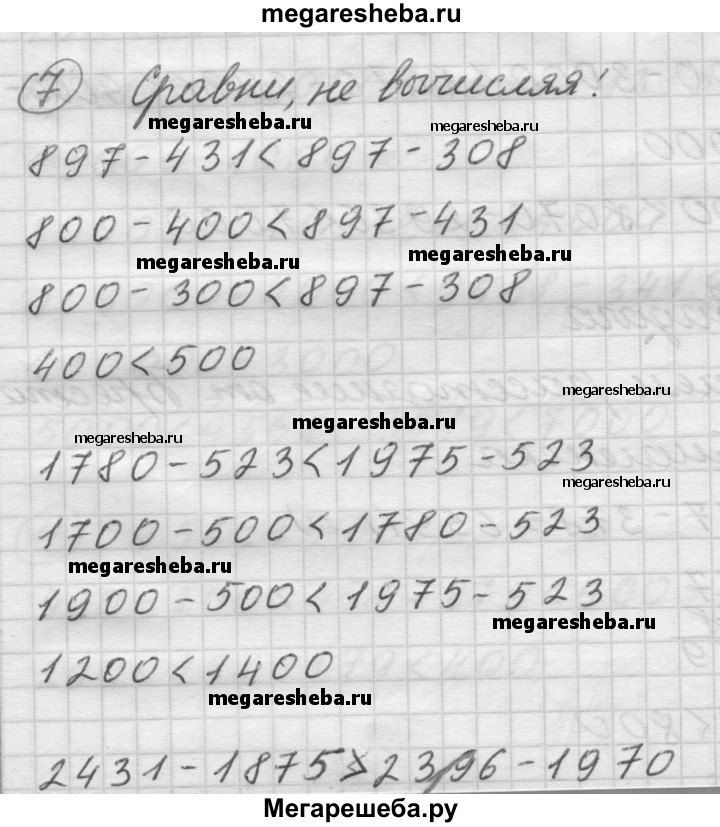 megaresheba.ru
7 Сравни, не вычисляя!
megaresheba.ru megaresheba.ru
897 - 431 < 897 - 308
800 - 400 < 897 - 431
megaresheba.ru megaresheba.ru
800 - 300 < 897 - 308
400 < 500
megaresheba.ru
megaresheba.ru
megaresheba.ru
1780 - 523 < 1975 - 523
megaresheba.ru
1700 - 500 < 1780 - 523
megaresheba.ru
1900 - 500 < 1975 - 523
megaresheba.ru
1200 < 1400
megaresheba.ru
2431 - 1875 > 2396 - 1970
Мегарешеба.ру